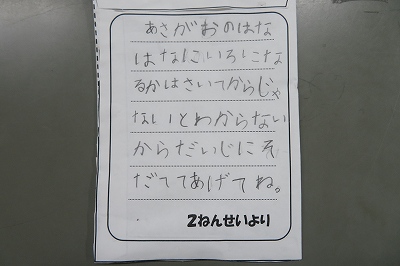 あさがおのはな
はなにいろにな
るかはさいてからじゃ
ないとわからない
からだいじにそ
だててあげてね。
2ねんせいより